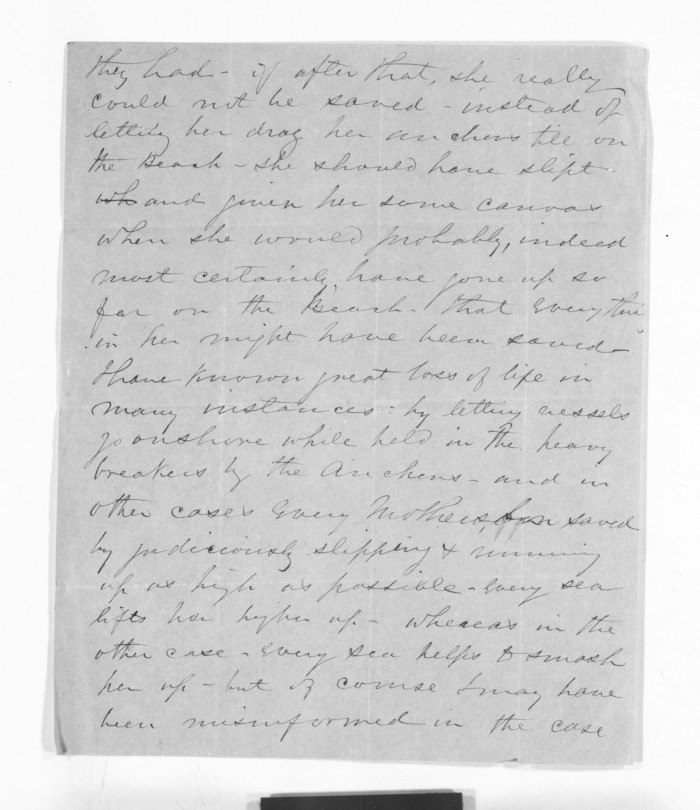 they had - if after that, she really
could not be saved - instead of
letting her drag her anchors till on
the Beach - she should have slipt -
wh and given her some canvas
when she would probably, indeed
most certainly, have gone up so
far on the Beach - that every thing
in her might have been saved -
I have known great loss of life in
many instances : by letting vessels
go onshore while held in the heavy
breakers by the anchors - and in
other cases every Mothers son saved
by judiciously slipping & running
up as high as possible - every sea
lifts her higher up - whereas in the
other case - every sea helps to smash
her up - but of course I may have
been misinformed in the case